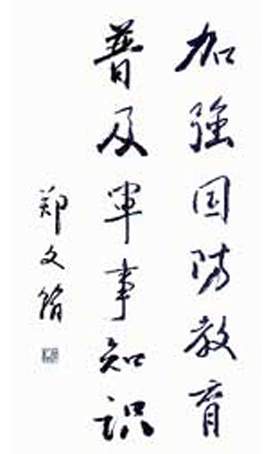 加強国防教育
普及軍事知识
郑文翰